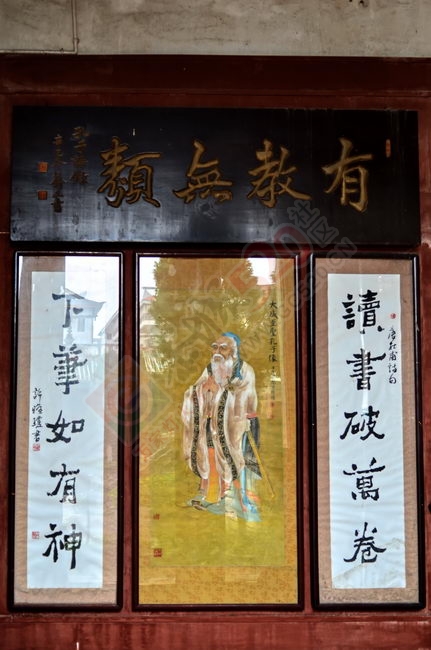 有教無類
讀書破萬卷
唐杜甫詩句
大成至聖孔子像
下筆如有神